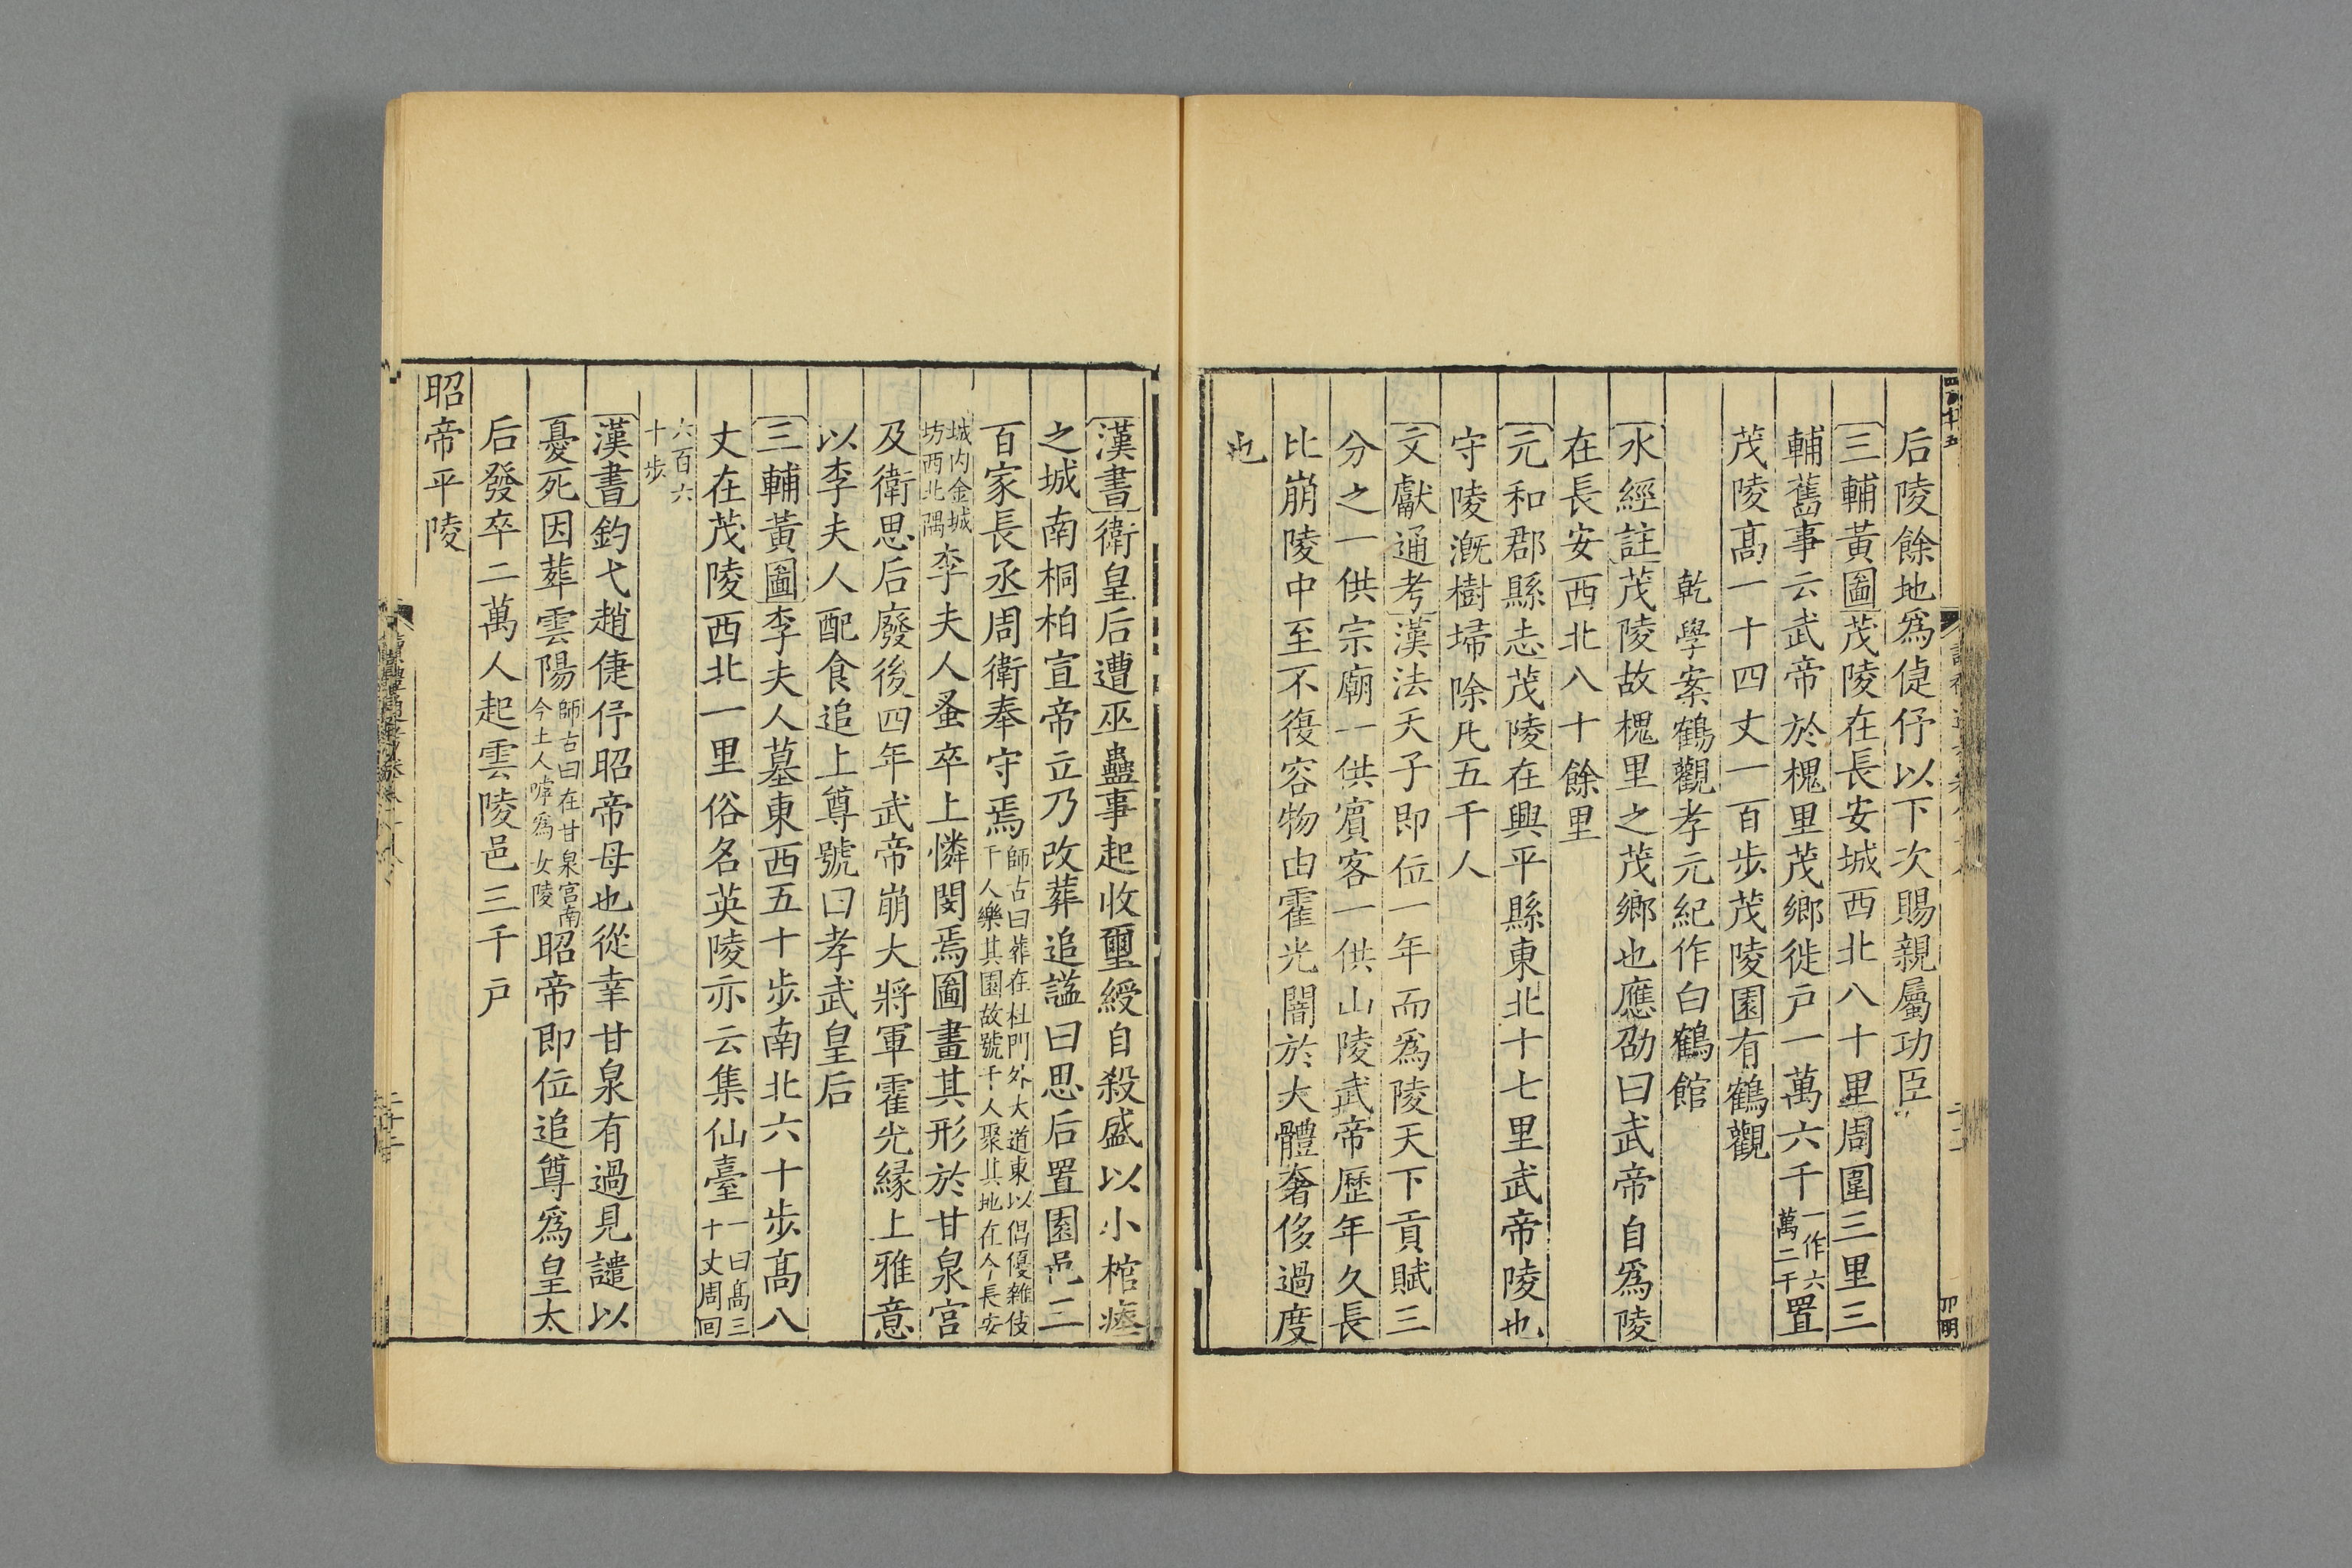 后陵餘地爲倢伃以下次賜親屬功臣
三輔黃圖茂陵在長安城西北八十里周圍三里三
輔舊事云武帝於槐里茂鄉徙戶一萬六千一作六萬二千置
茂陵高一十四丈一百步茂陵園有鶴觀
乾學案鶴觀孝元紀作白鶴館
水經註茂陵故槐里之茂鄉也應劭曰武帝自爲陵
在長安西北八十餘里
元和郡縣志茂陵在興平縣東北十七里武帝陵也
守陵溉樹埽除凡五千人
文獻通考漢法天子即位一年而爲陵天下貢賦三
分之一供宗廟一供賓客一供山陵武帝歷年久長
比崩陵中至不復容物由霍光闇於大體奢侈過度
也
漢書衛皇后遭巫蠱事起收璽綬自殺盛以小棺瘞
之城南桐柏宣帝立乃改葬追諡曰思后置園邑三
百家長丞周衛奉守焉師古曰葬在杜門外大道東以倡優雜伎千人樂其園故號千人聚其地在今長安
城內金城坊西北隅李夫人蚤卒上憐閔焉圖畫其形於甘泉宮
及衛思后廢後四年武帝崩大將軍霍光緣上雅意
以李夫人配食追上尊號曰孝武皇后
三輔黃圖李夫人墓東西五十步南北六十步高八
丈在茂陵西北一里俗名英陵亦云集仙臺一曰高三十丈周回
六百六十步
漢書鉤弋趙倢伃昭帝母也從幸甘泉有過見譴以
憂死因葬雲陽師古曰在甘泉宮南今土人呼爲女陵昭帝即位追尊爲皇太
后發卒二萬人起雲陵邑三千戶
昭帝平陵